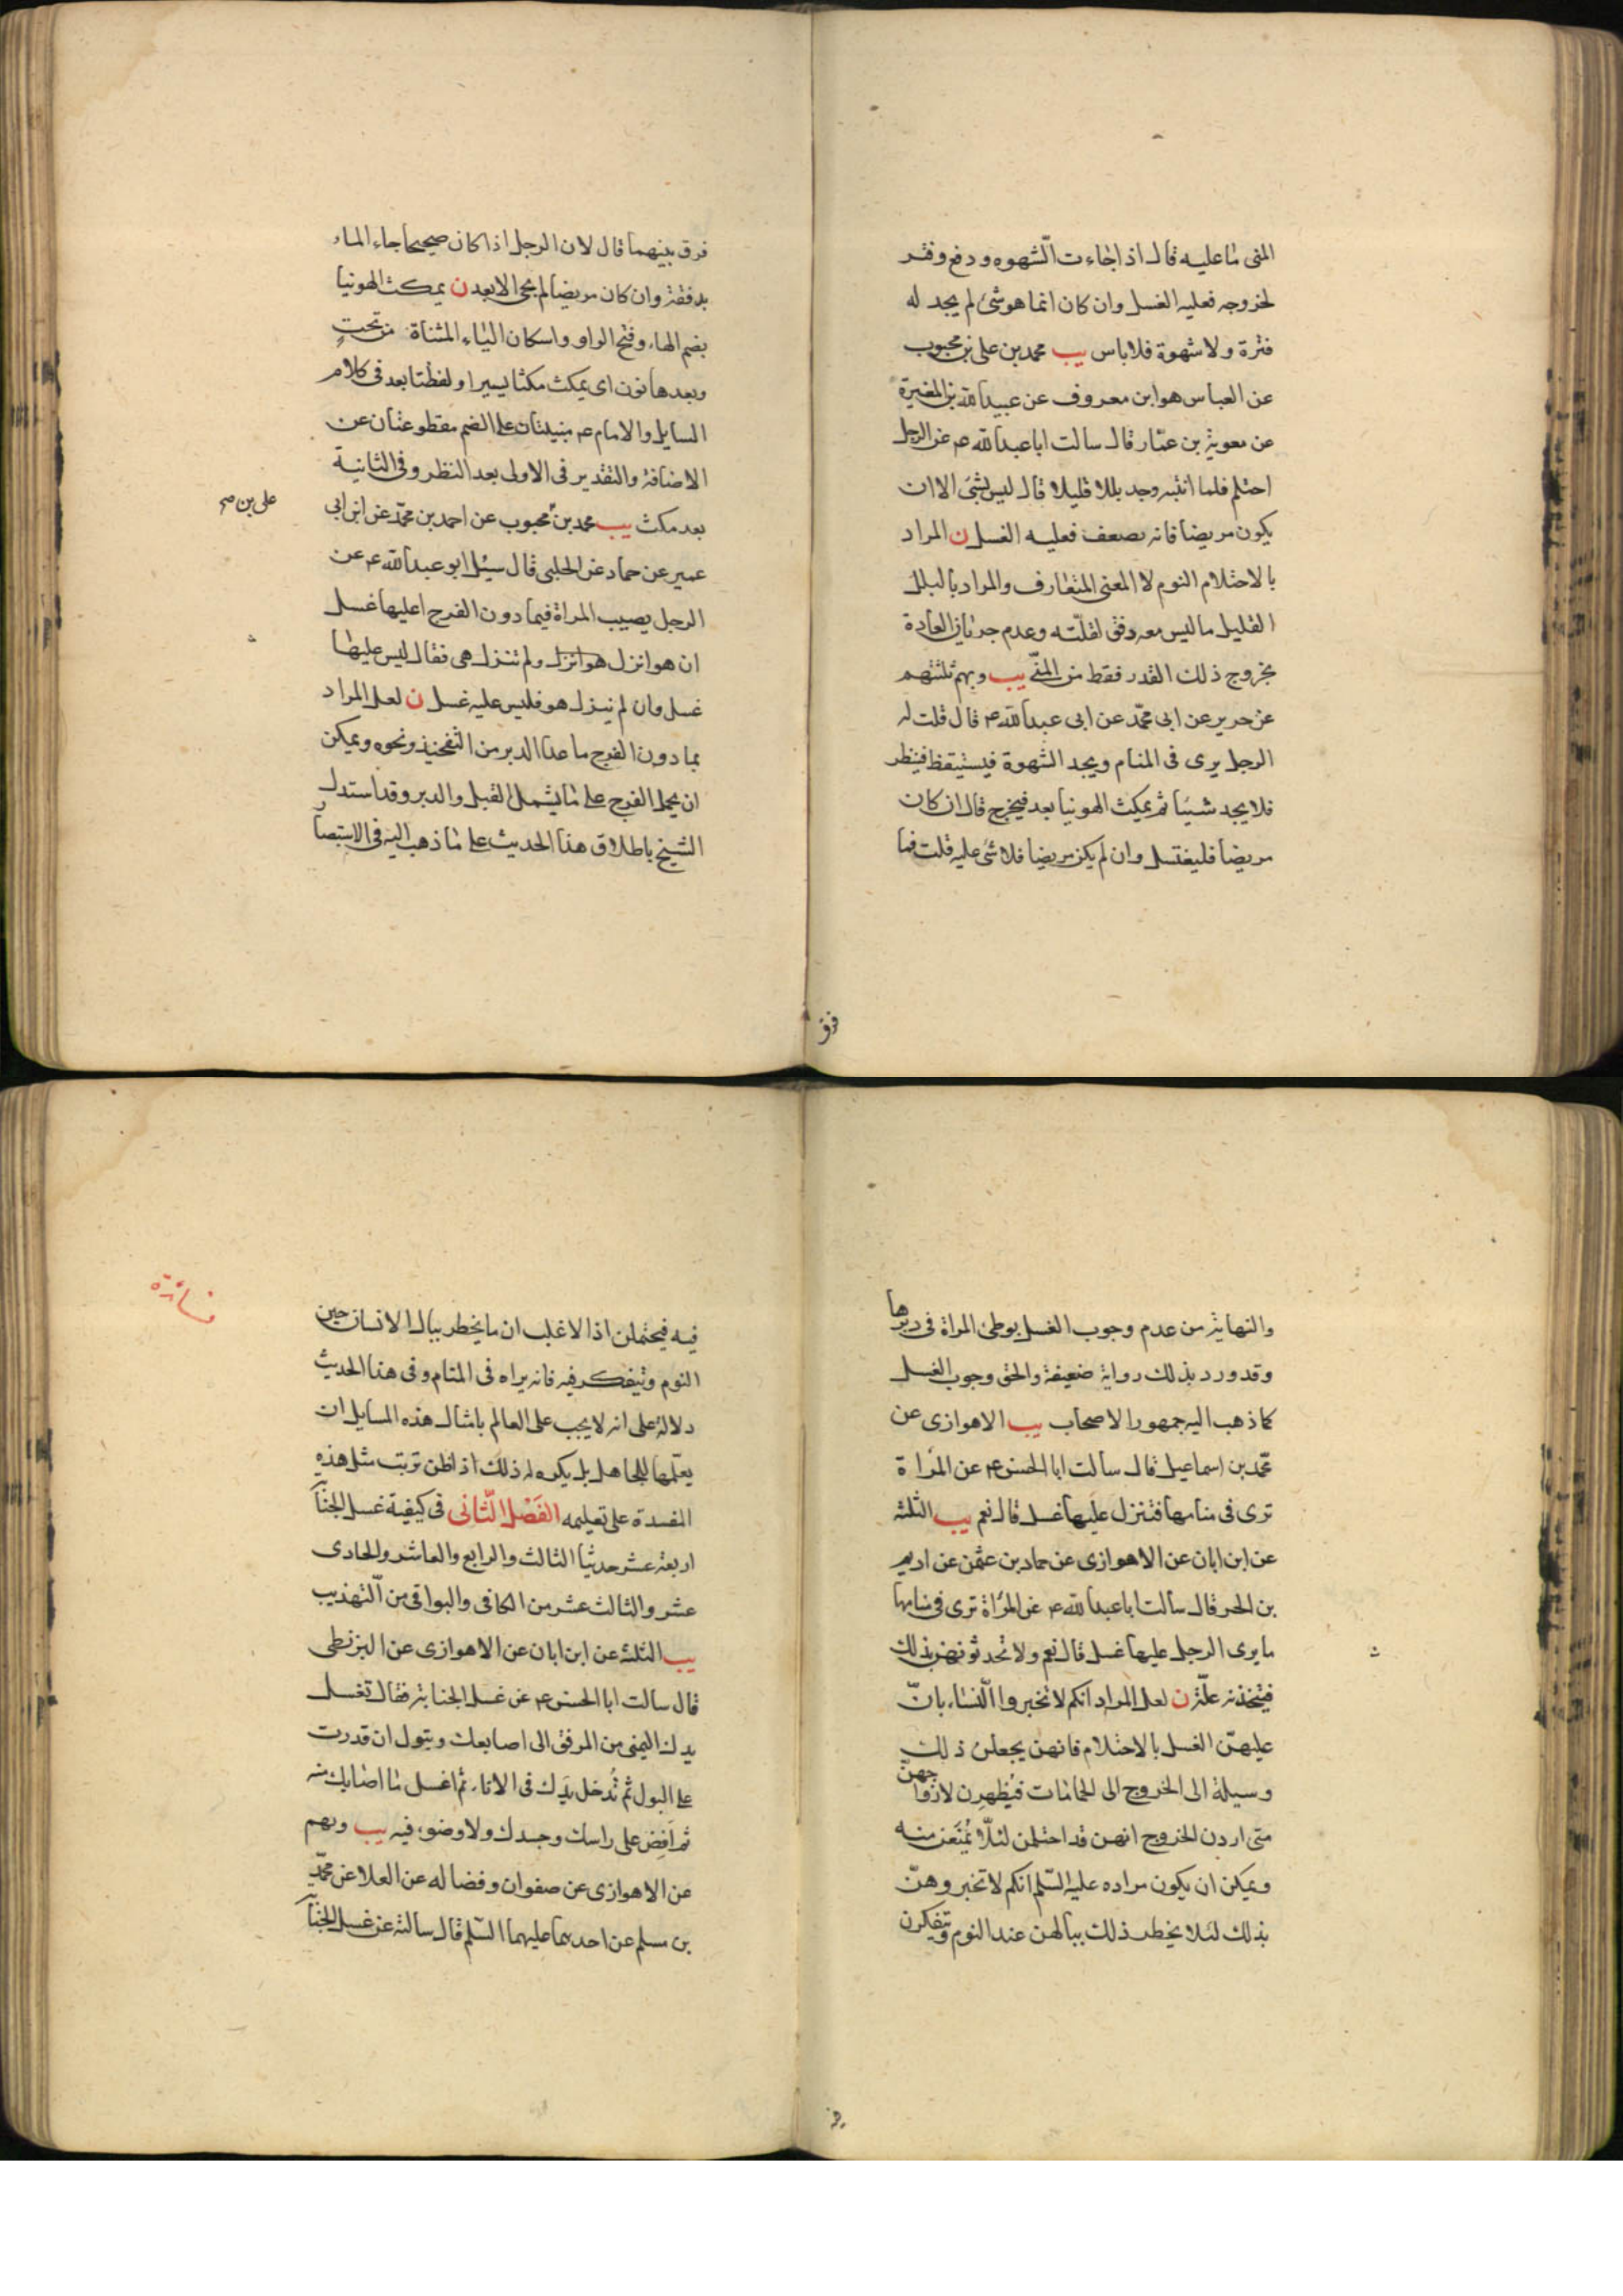 المنى ما عليه قال اذا جاءت الشهوه ودفع وفتر
لخروجه فعليه الغسل وان كان انما هو شئ لم يجد له
فترة ولا شهوة فلا باس يب محمد بن على بن محبوب
عن العباس هو ابن معروف عن عبد الله بن المغيرة
عن معوية بن عمار قال سالت ابا عبد الله ع عن الرجل
احتلم فلما انتبه وجد بللا قليلا قال ليس بشئ الا ان
يكون مريضا فانه يضعف فعليه الغسل ن المراد
بالاحتلام النوم لا المعنى المتعارف والمراد بالبلل
القليل ما ليس معه دفق لقلته وعدم جريان العادة
بخروج ذلك القدر فقط من المنى يب وبهم ثلثتهم
عن حريز عن ابى محمد عن ابى عبد الله ع قال قلت له
الرجل يرى فى المنام ويجد الشهوة فيستيقظ فينظر
فلا يجد شيئا ثم يمكث الهوينا بعد فيخرج قال ان كان
مريضا فليغتسل وان لم يكن مريضا فلا شئ عليه قلت فما
فرق
فرق بينهما قال لان الرجل اذا كان صحيحا جاء الماء
بدفقة وان كان مريضا لم يجئ الا بعد ن يمكث الهوينا
بضم الهاء وفتح الواو واسكان الياء المثناة من تحت
وبعدها نون اى يمكث مكثا يسيرا ولفظتا بعد فى كلام
السايل والامام ع مبنيتان على الضم مقطوعتان عن
الاضافة والتقدير فى الاولى بعد النظر وفى الثانية
بعد مكث يب محمد بن محبوب عن احمد بن محمد عن ابن ابى
على بن صح
عمير عن حماد عن الحلبى قال سئل ابو عبد الله ع عن
الرجل يصيب المراة فيما دون الفرج اعليها غسل
ان هو انزل هو انزل ولم تنزل هى فقال ليس عليها
غسل وان لم ينزل هو فليس عليه غسل ن لعل المراد
بما دون الفرج ما عدا الدبر من التفخيذ ونحوه ويمكن
ان يحمل الفرج على ما يشمل القبل والدبر وقد استدل
الشيخ باطلاق هذا الحديث على ما ذهب اليه فى الاستبصار
والنهاية من عدم وجوب الغسل بوطئ المراة فى دبرها
وقد ورد بذلك رواية ضعيفة والحق وجوب الغسل
كما ذهب اليه جمهور الاصحاب يب الاهوازى عن
محمد بن اسماعيل قال سألت ابا الحسن ع عن المراة
ترى فى منامها فتنزل عليها غسل قال نعم يب الثلثة
عن ابن ابان عن الاهوازى عن حماد بن عثمن عن اديم
بن الحر قال سألت ابا عبد الله ع عن المراة ترى فى منامها
ما يرى الرجل عليها غسل قال نعم ولا تحدثوهن بذلك
فيتخذنه علة ن لعل المراد انكم لا تخبروا النساء بان
عليهن الغسل بالاحتلام فانهن يجعلن ذلك
وسيلة الى الخروج الى الحمامات فيظهرن لازواجهن
متى اردن الخروج انهن قد احتلمن لئلا يمنعن منه
ويمكن ان يكون مراده عليه السلم انكم لا تخبروهن
بذلك لئلا يخطر ذلك ببالهن عند النوم ويتفكرن
فيه فيحتلمن اذ الاغلب ان ما يخطر ببال الانسان حين
النوم ويتفكر فيه فانه يراه فى المنام وفى هذا الحديث
دلالة على انه لا يجب على العالم بامثال هذه المسايل ان
يعلمها للجاهل بل يكره له ذلك اذا ظن ترتب مثل هذه
المفسدة على تعليمه الفصل الثانى فى كيفية غسل الجنابة
اربعة عشر حديثا الثالث والرابع والعاشر والحادى
عشر والثالث عشر من الكافى والبواقى من التهذيب
يب الثلثة عن ابن ابان عن الاهوازى عن البزنطى
قال سالت ابا الحسن ع عن غسل الجنابة فقال تغسل
يدك اليمنى من المرفق الى اصابعك وتبول ان قدرت
على البول ثم تدخل يدك فى الاناء ثم اغسل ما اصابك منه
ثم افض على راسك وجسدك ولا وضوء فيه يب وبهم
عن الاهوازى عن صفوان وفضاله عن العلا عن محمد
بن مسلم عن احدهما عليهما السلم قال سالته عن غسل الجنابة